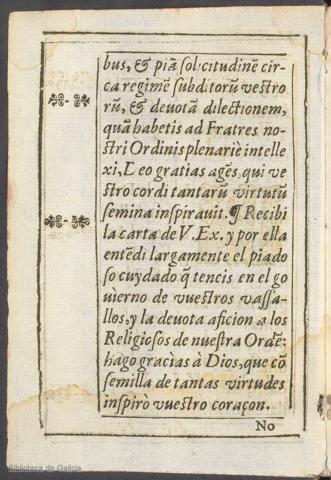 bus, & piã sol·citudinẽ cir-
ca regimẽ subditorũ vestro
rũ, & deuotã dilectionem,
quã habetis ad Fratres no-
stri Ordinis plenariè intelle
xi, Deo gratias agẽs, qui ve
stro cordi tantarũ virtutũ
semina inspirauit. ¶ Recibi
la carta de V. Ex. y por ella
entẽdi largamente el piado
so cuydado q̃ teneis en el go
uierno de vuestros vassa-
llos, y la deuota aficion a los
Religiosos de nuestra Ordẽ:
hago gracias à Dios, que cõ
semilla de tantas virtudes
inspirò vuestro coraçon.
No
Biblioteca de Galicia